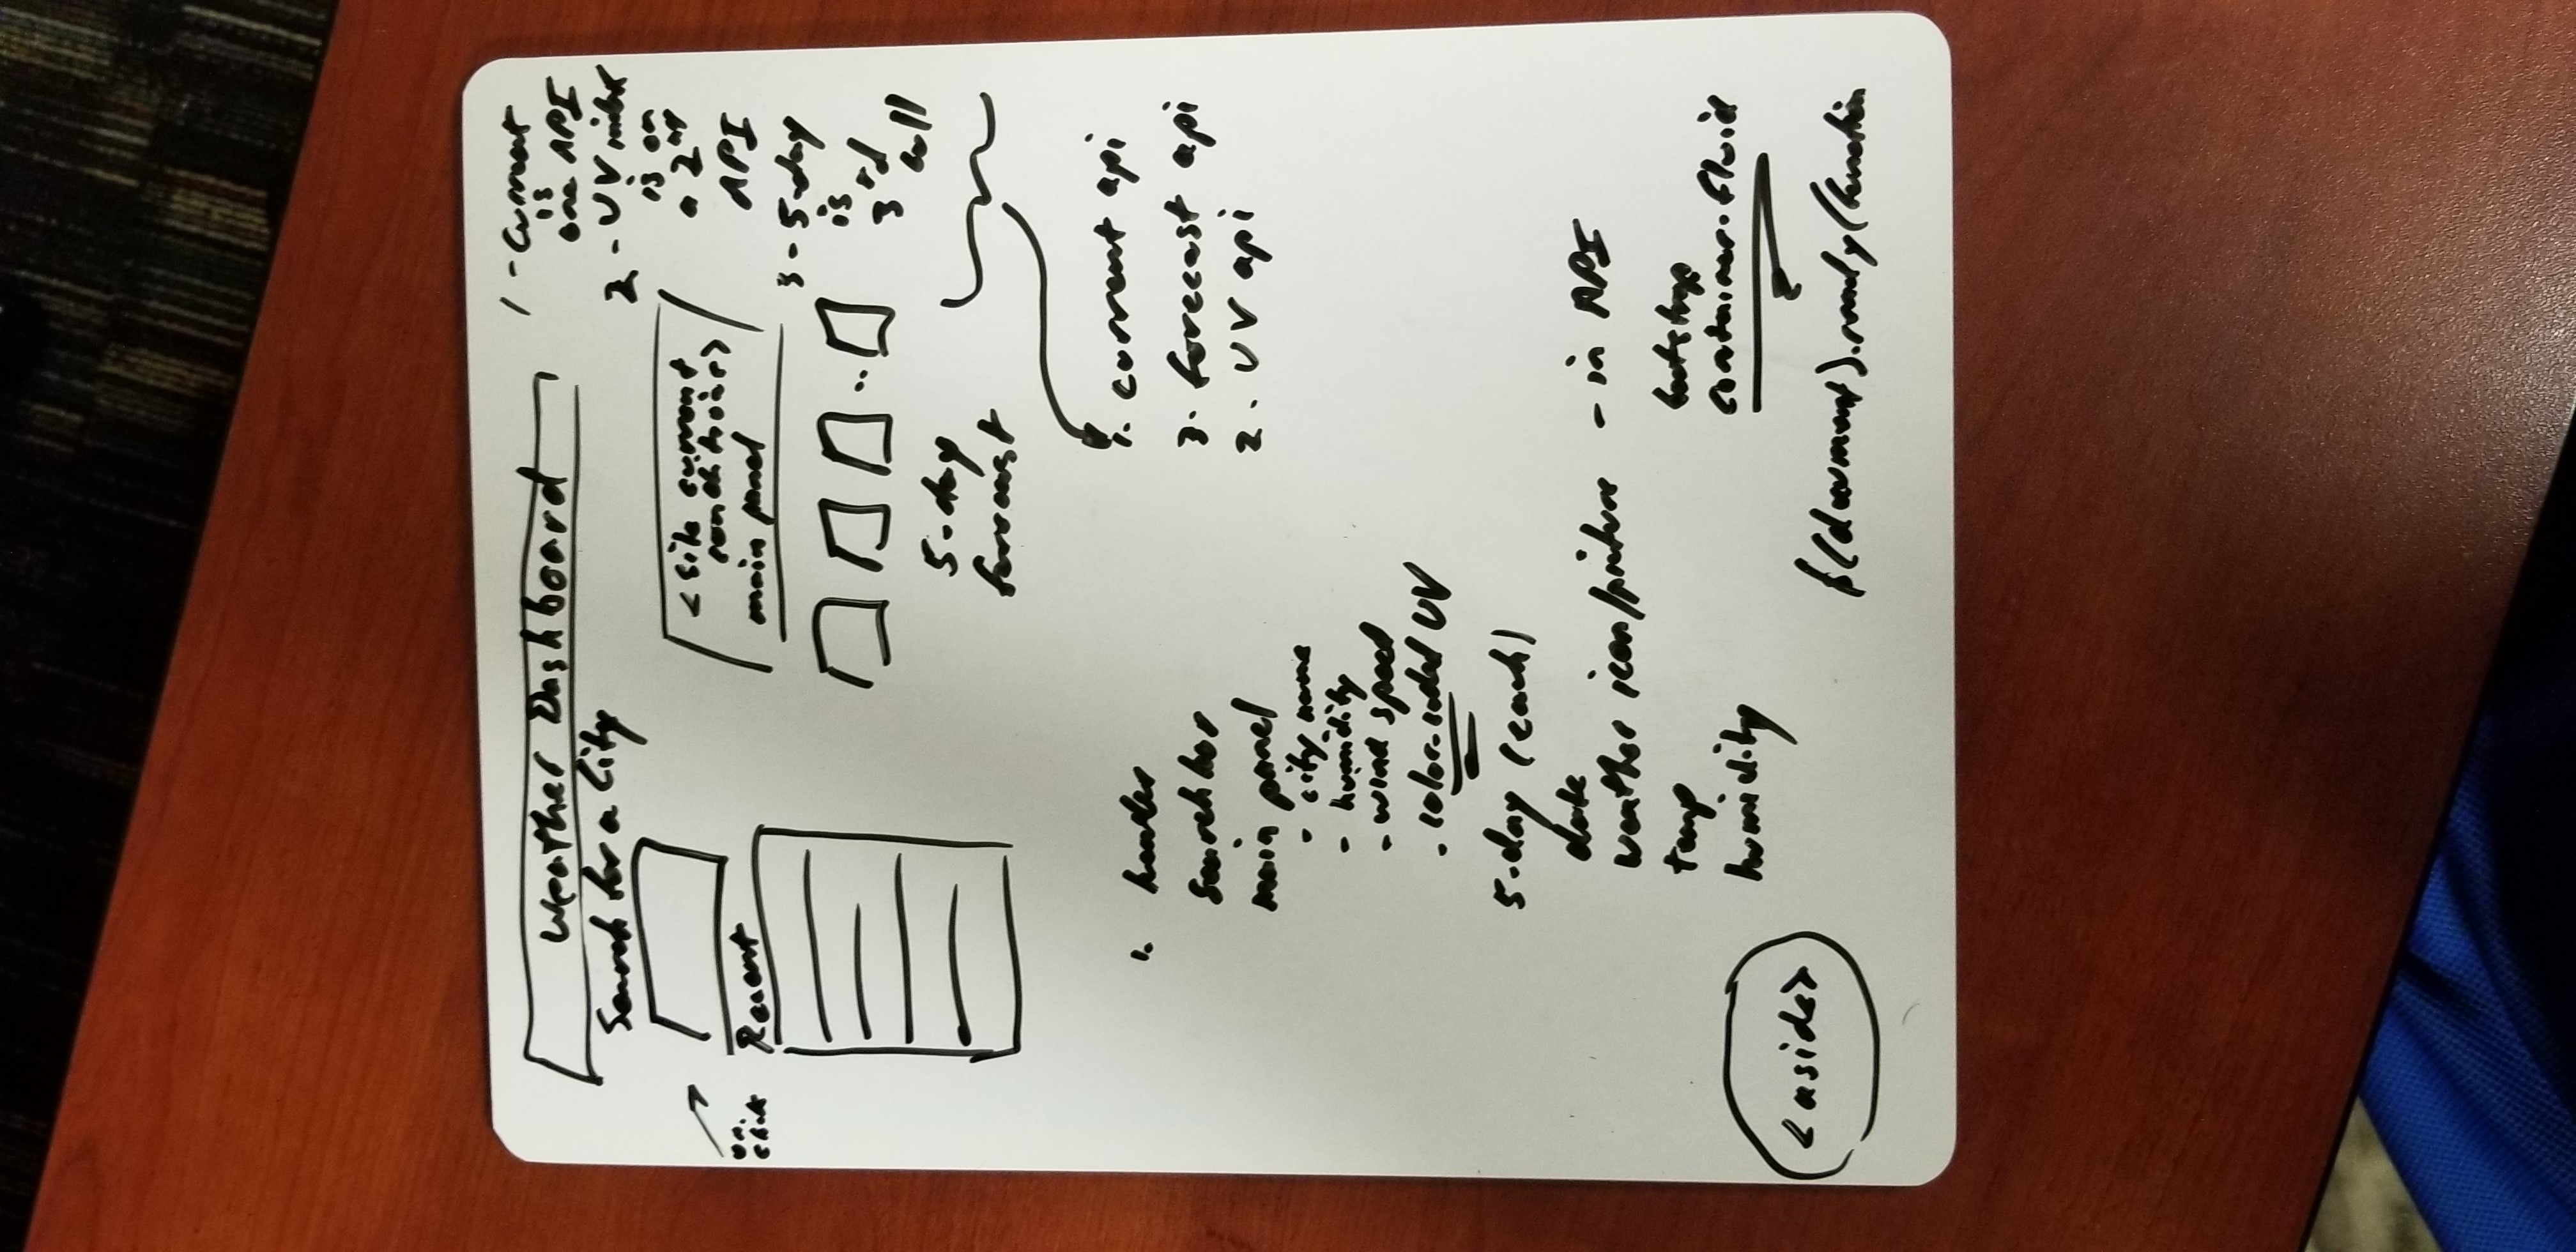 Weather Dashboard
Search for a City
on
click
Recent
< site current
conditions>
main panel
5-day
forecast
1 - Current
is
one API
2 - UV index
is on
a 2nd
API
3 - 5-day
is
3rd
call
1. current api
3. forecast api
2. UV api
1. header
search bar
main panel
- city name
- humidity
- wind speed
- color-coded UV
5-day (each)
date
weather icon/picture - in API
temp
humidity
<aside>
bootstrap
container-fluid
$(document).ready(function